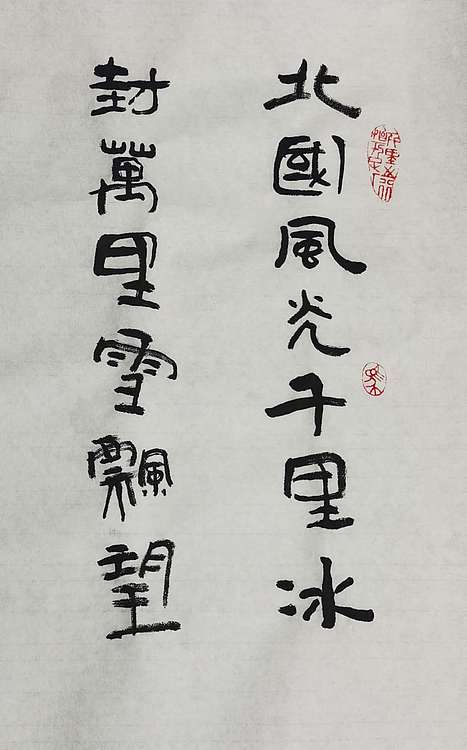 北國風光千里冰
封萬里雪飄望